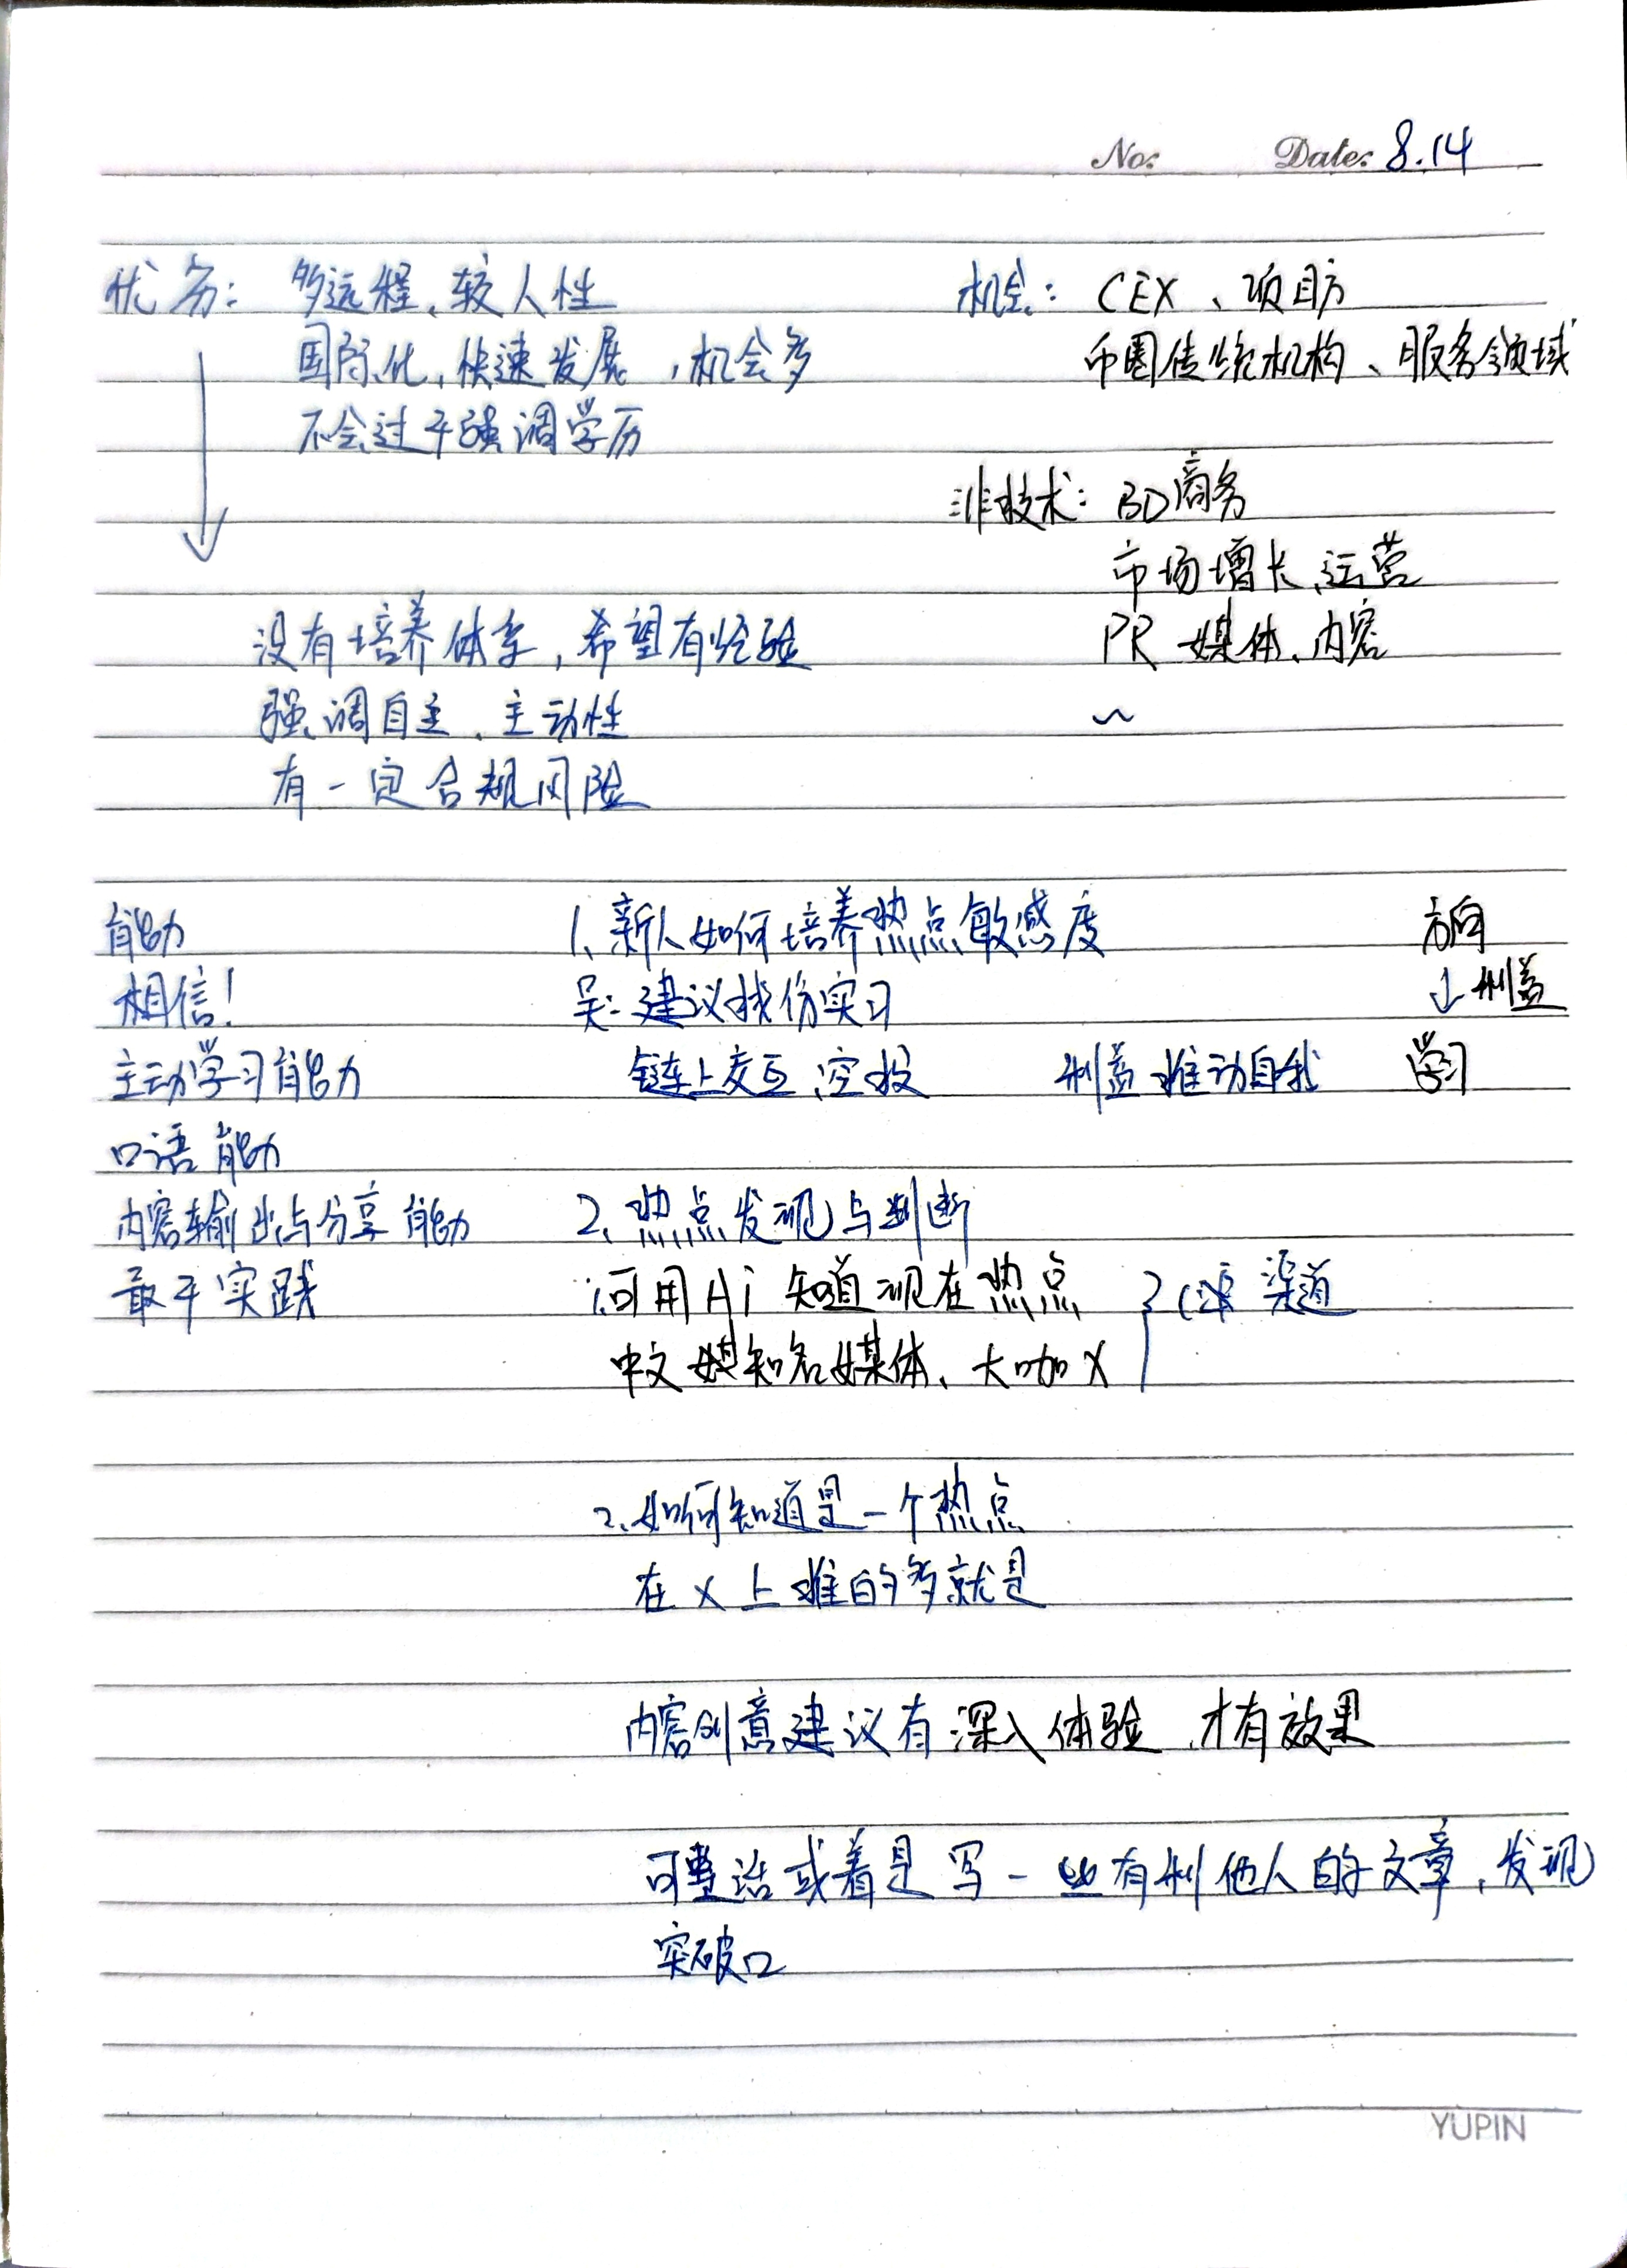 No: Date: 8.14
优务: 多远程、较人性
国际化, 快速发展, 机会多
不会过于强调学历
没有培养体系, 希望有经验
强调自主、主动性
有一定合规风险
机会: CEX、项目方
币圈传统机构、服务领域
非技术: BD商务
市场增长、运营
PR 媒体、内容
~
能力
相信!
主动学习能力
口语能力
内容输出与分享能力
敢于实践
1、新人如何培养热点敏感度
吴: 建议找份实习
链上交互、空投 利益推动自我
方向
↓利益
学习
2、热点发现与判断
1.可用Ai 知道现在热点
中文 知名媒体、大咖X
渠道
2、如何知道是一个热点
在X上推的多就是
内容创意建议有深入体验, 才有效果
可整活或着是写一些有利他人的文章, 发现
突破口
YUPIN